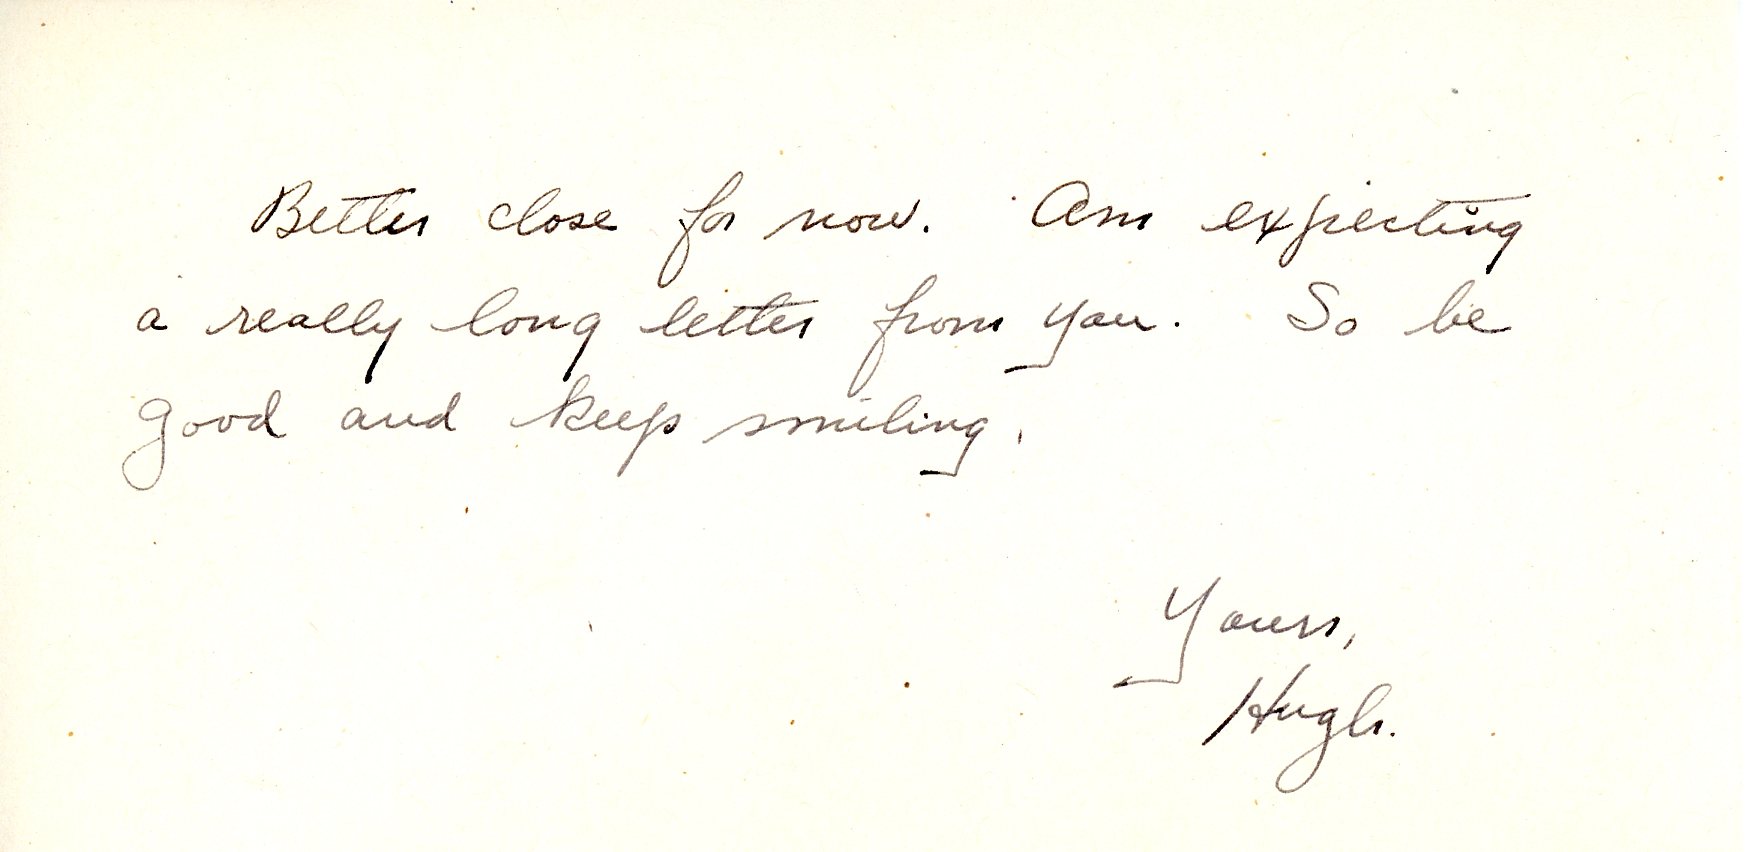 Better close for now. Am expecting
a really long letter from you. So be
good and keep smiling.
Yours,
Hugh.